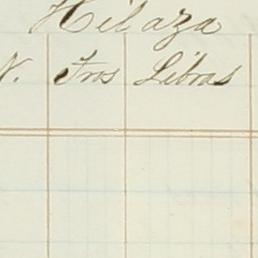 Hilaza
N. Fros Libras